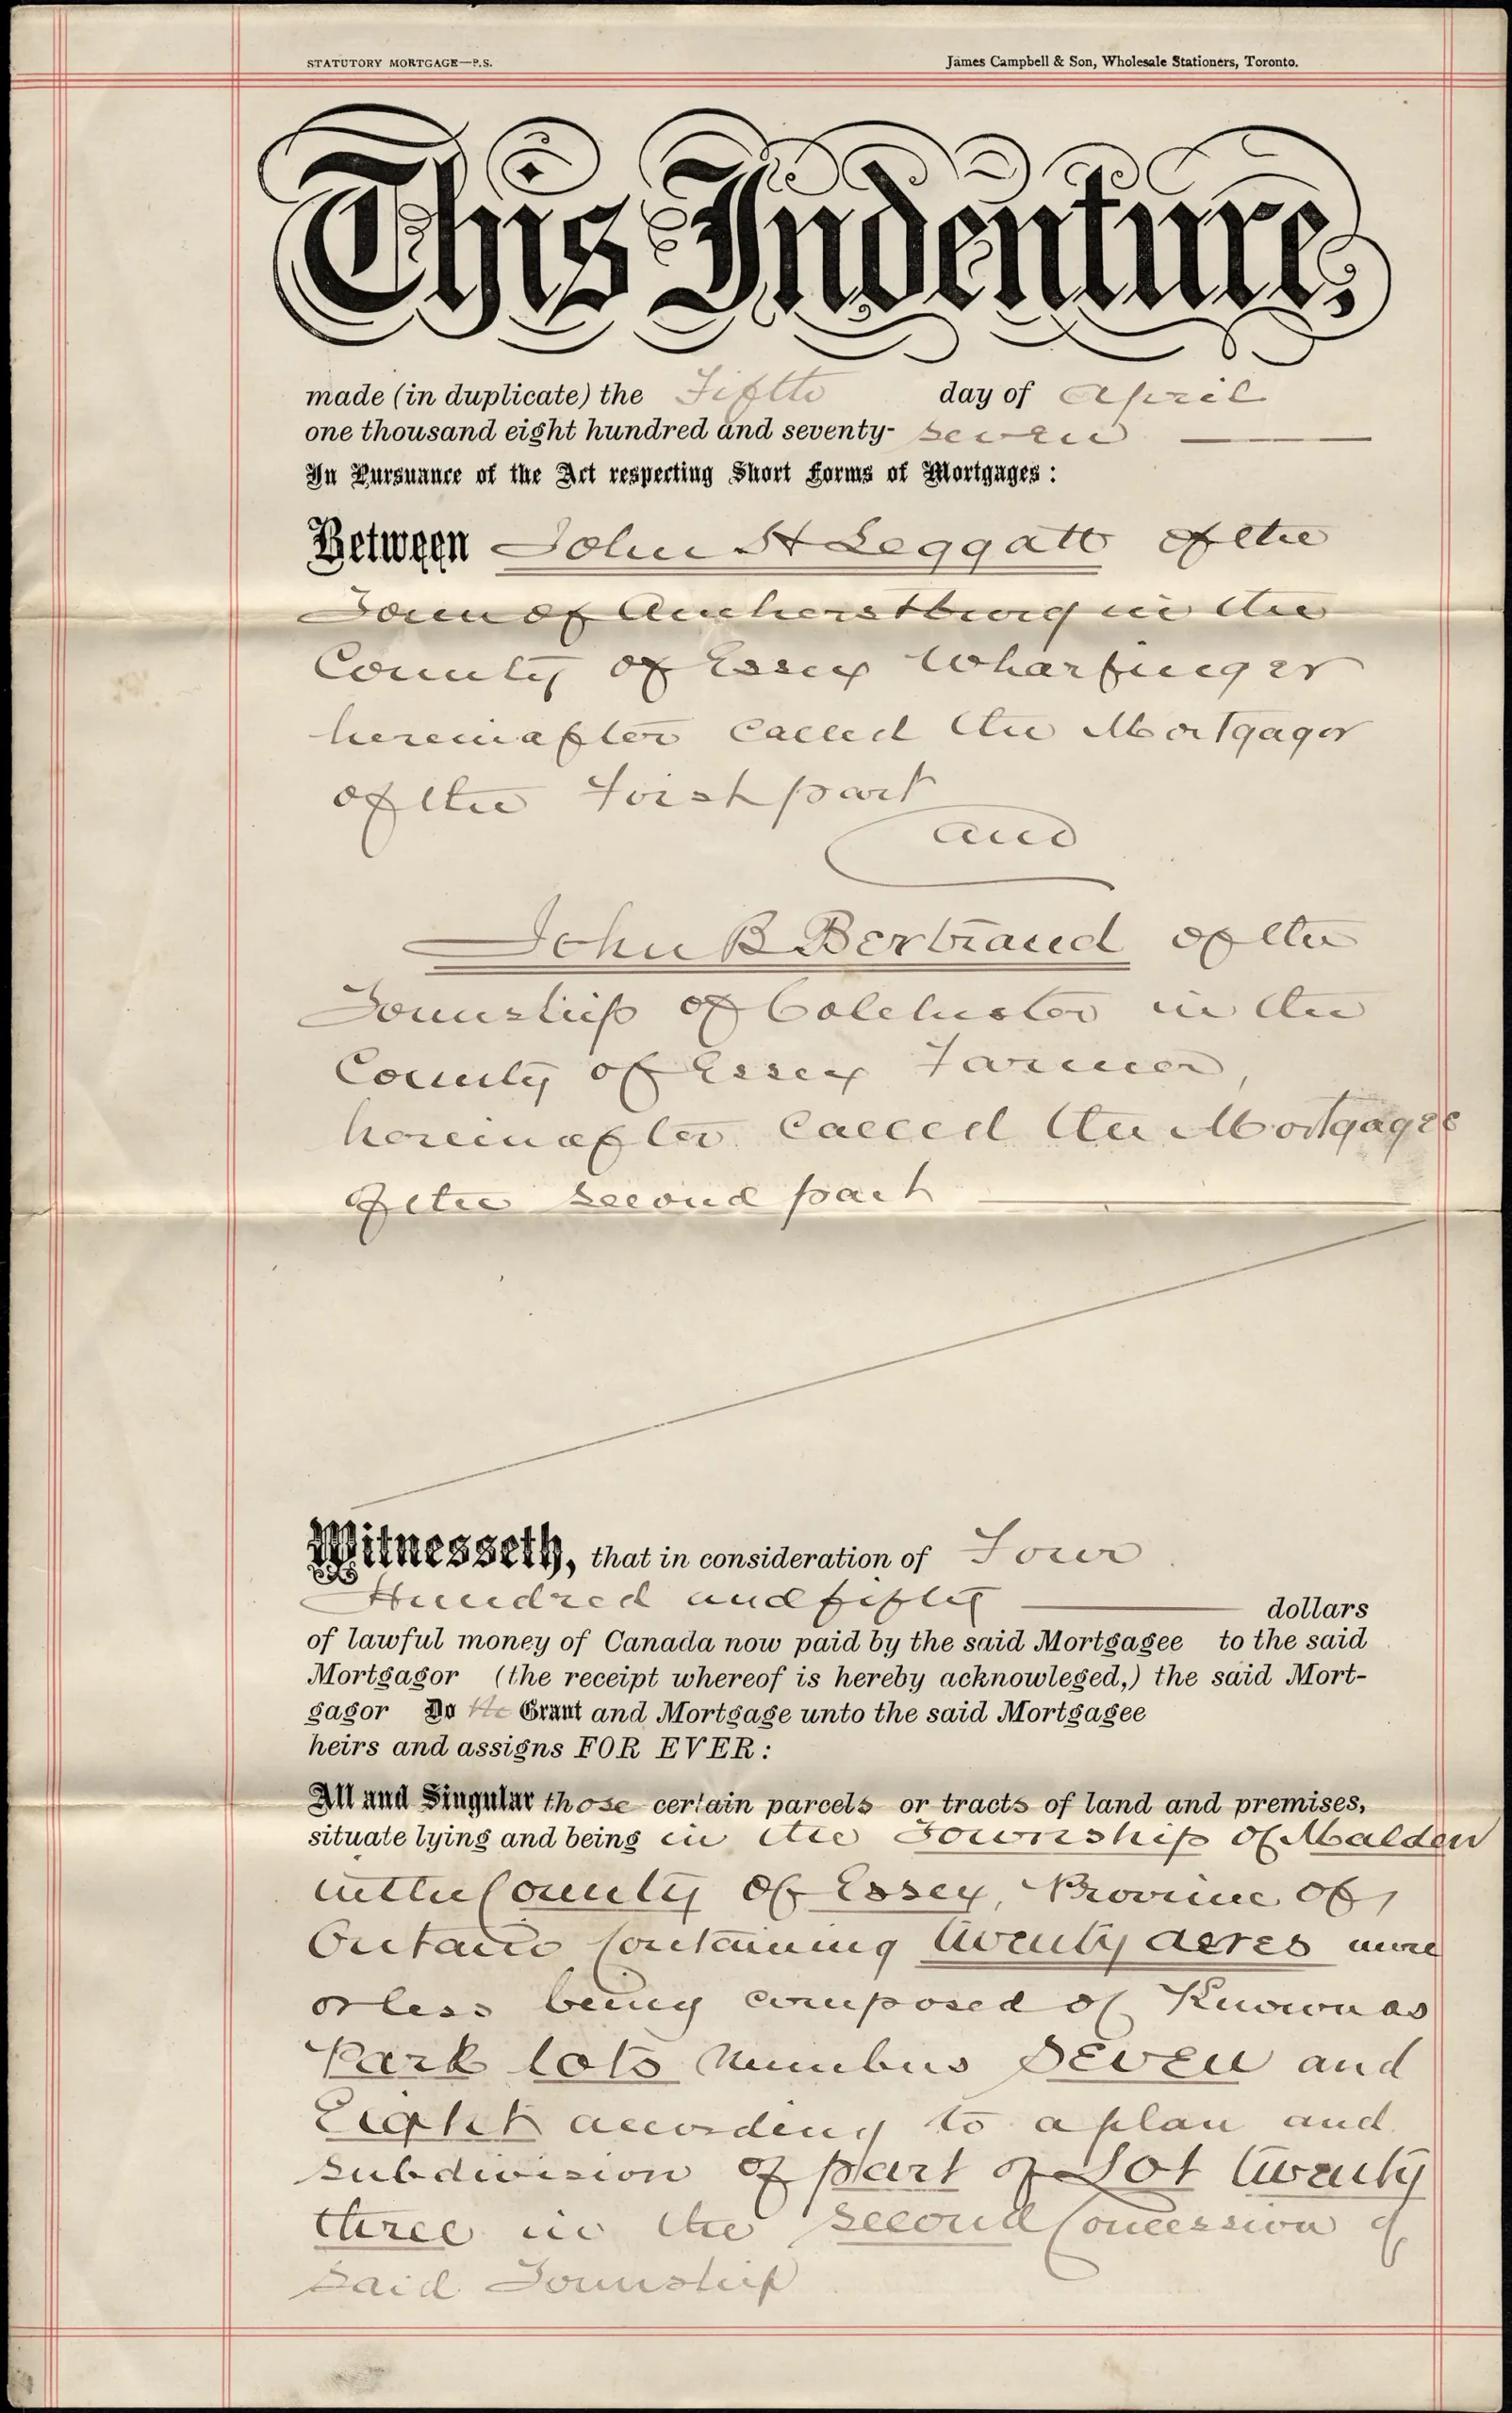 STATUTORY MORTGAGE—P.S. James Campbell & Son, Wholesale Stationers, Toronto.
This Indenture,
made (in duplicate) the Fifth day of April
one thousand eight hundred and seventy- seven
In Pursuance of the Act respecting Short Forms of Mortgages :
Between John H Leggatt of the
Town of Amherstburg in the
County of Essex Wharfinger
hereinafter called the Mortgagor
of the First part
and
John B Bertrand of the
Township of Colchester in the
County of Essex Farmer,
hereinafter called the Mortgagee
of the second part
Witnesseth, that in consideration of Four
Hundred and fifty dollars
of lawful money of Canada now paid by the said Mortgagee to the said
Mortgagor (the receipt whereof is hereby acknowleged,) the said Mort-
gagor Do th Grant and Mortgage unto the said Mortgagee
heirs and assigns FOR EVER :
All and Singular those certain parcels or tracts of land and premises,
situate lying and being in the Township of Malden
in the County of Essex, Province of
Ontario Containing twenty acres more
or less being composed of Known as
Park lots numbers Seven and
Eight according to a plan and
subdivision of part of Lot twenty
three in the second Concession of
said Township